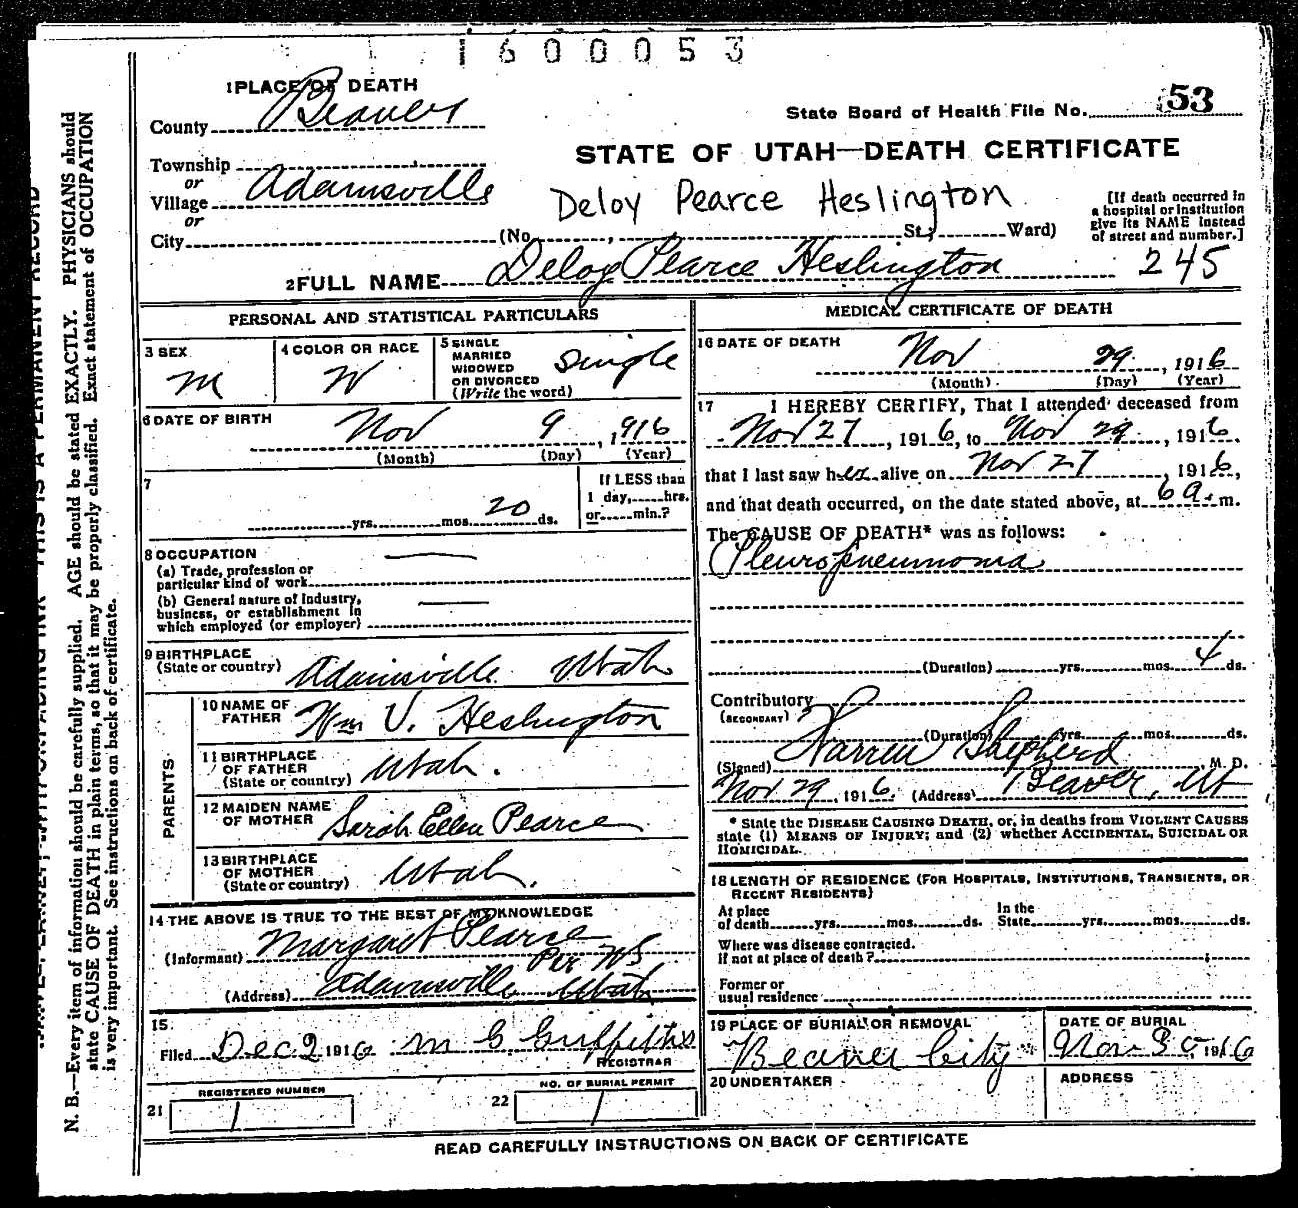 1600053
1 PLACE OF DEATH
County Beaver
State Board of Health File No. 53
STATE OF UTAH—DEATH CERTIFICATE
Township
or
Village Adamsville
Deloy Pearce Heslington
or
City (No. , St.; Ward)
[If death occurred in
a hospital or institution
give its NAME instead
of street and number.]
2 FULL NAME Deloy Pearce Heslington 245
PERSONAL AND STATISTICAL PARTICULARS
3 SEX
M
4 COLOR OR RACE
W
5 SINGLE
MARRIED
WIDOWED
OR DIVORCED
(Write the word)
Single
6 DATE OF BIRTH
Nov 9, 1916
(Month) (Day) (Year)
7
yrs. mos. 20 ds.
If LESS than
1 day, hrs.
or min.?
8 OCCUPATION
(a) Trade, profession or
particular kind of work
(b) General nature of industry,
business, or establishment in
which employed (or employer)
9 BIRTHPLACE
(State or country) Adamsville Utah
PARENTS
10 NAME OF
FATHER Wm V. Heslington
11 BIRTHPLACE
OF FATHER
(State or country) Utah.
12 MAIDEN NAME
OF MOTHER Sarah Ellen Pearce
13 BIRTHPLACE
OF MOTHER
(State or country) Utah.
14 THE ABOVE IS TRUE TO THE BEST OF MY KNOWLEDGE
(Informant) Margaret Pearce
Per WS
(Address) Adamsville Utah
15
Filed Dec. 2 1916 M C Griffiths
REGISTRAR
REGISTERED NUMBER
21 1
NO. OF BURIAL PERMIT
22 1
MEDICAL CERTIFICATE OF DEATH
16 DATE OF DEATH
Nov 29, 1916
(Month) (Day) (Year)
17 I HEREBY CERTIFY, That I attended deceased from
Nov 27, 1916, to Nov 29, 1916.
that I last saw her alive on Nov 27, 1916,
and that death occurred, on the date stated above, at 6 a. m.
The CAUSE OF DEATH* was as follows:
Pleuropneumonia
(Duration) yrs. mos. 4 ds.
Contributory
(SECONDARY)
(Duration) yrs. mos. ds.
(Signed) Warren Shepherd, M. D.
Nov 29, 1916. (Address) Beaver, Ut
* State the DISEASE CAUSING DEATH, or, in deaths from VIOLENT CAUSES
state (1) MEANS OF INJURY; and (2) whether ACCIDENTAL, SUICIDAL OR
HOMICIDAL.
18 LENGTH OF RESIDENCE (FOR HOSPITALS, INSTITUTIONS, TRANSIENTS, OR
RECENT RESIDENTS)
At place
of death yrs. mos. ds.
In the
State yrs. mos. ds.
Where was disease contracted.
If not at place of death?
Former or
usual residence
19 PLACE OF BURIAL OR REMOVAL
Beaver City
DATE OF BURIAL
Nov 30, 1916
20 UNDERTAKER
ADDRESS
READ CAREFULLY INSTRUCTIONS ON BACK OF CERTIFICATE
N. B.—Every item of information should be carefully supplied. AGE should be stated EXACTLY. PHYSICIANS should
state CAUSE OF DEATH in plain terms, so that it may be properly classified. Exact statement of OCCUPATION
is very important. See instructions on back of certificate.
THIS IS A PERMANENT RECORD